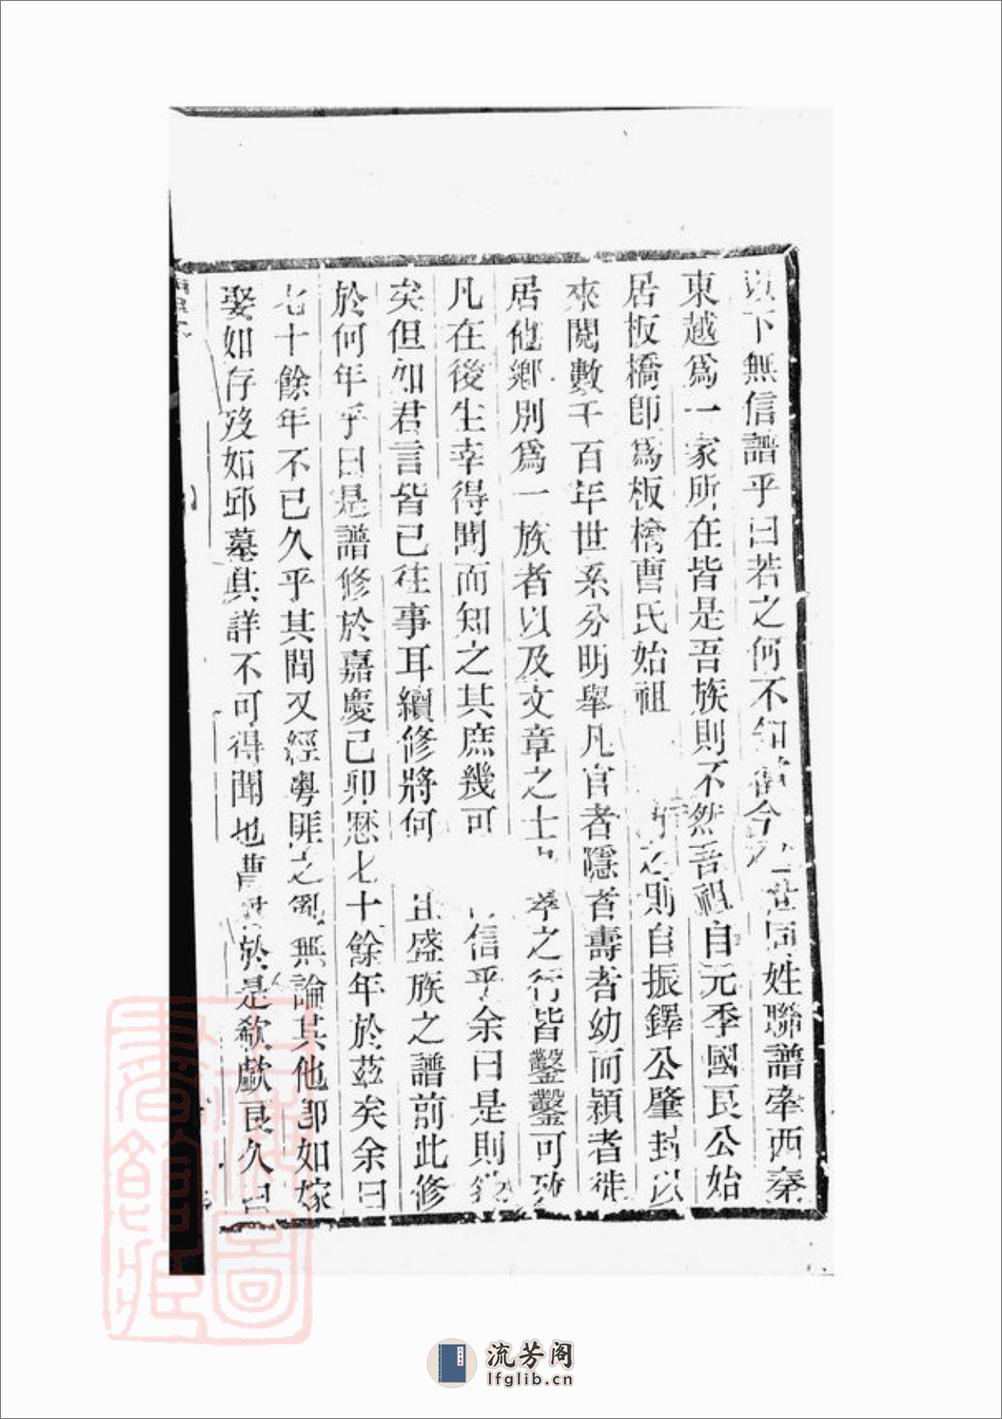 下無信譜乎曰若之何不今世同姓聯譜牽西秦
東越爲一家所在皆是吾族則不然吾祖自元季國良公始
居板橋卽爲板橋曹氏始祖之則自振鐸公肇封以
來閱數千百年世系分明舉凡官者隱者壽者幼而穎者徙
居他鄉別爲一族者以及文章之士之行皆鑿鑿可
凡在後生幸得聞而知之其庶幾可信乎余曰是則
矣但如君言皆已往事耳續修將何且盛族之譜前此修
於何年乎曰是譜修於嘉慶己卯歷七十餘年於茲矣余曰
七十餘年不已久乎其間又經粵匪之亂無論其他卽如嫁
娶如存歿如邱墓其詳不可得聞也曹於是欷歔良久曰
流芳阁
lfglib.cn